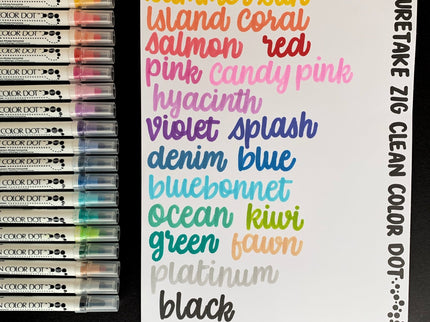 island coral
salmon red
pink candy pink
hyacinth
violet splash
denim blue
bluebonnet
ocean kiwi
green fawn
platinum
black
URETAKE ZIG CLEAN COLOR DOT
COLOR DOT
COLOR DOT
COLOR DOT
COLOR DOT
COLOR DOT
COLOR DOT
COLOR DOT
COLOR DOT
COLOR DOT
COLOR DOT
COLOR DOT
COLOR DOT
COLOR DOT
COLOR DOT
COLOR DOT